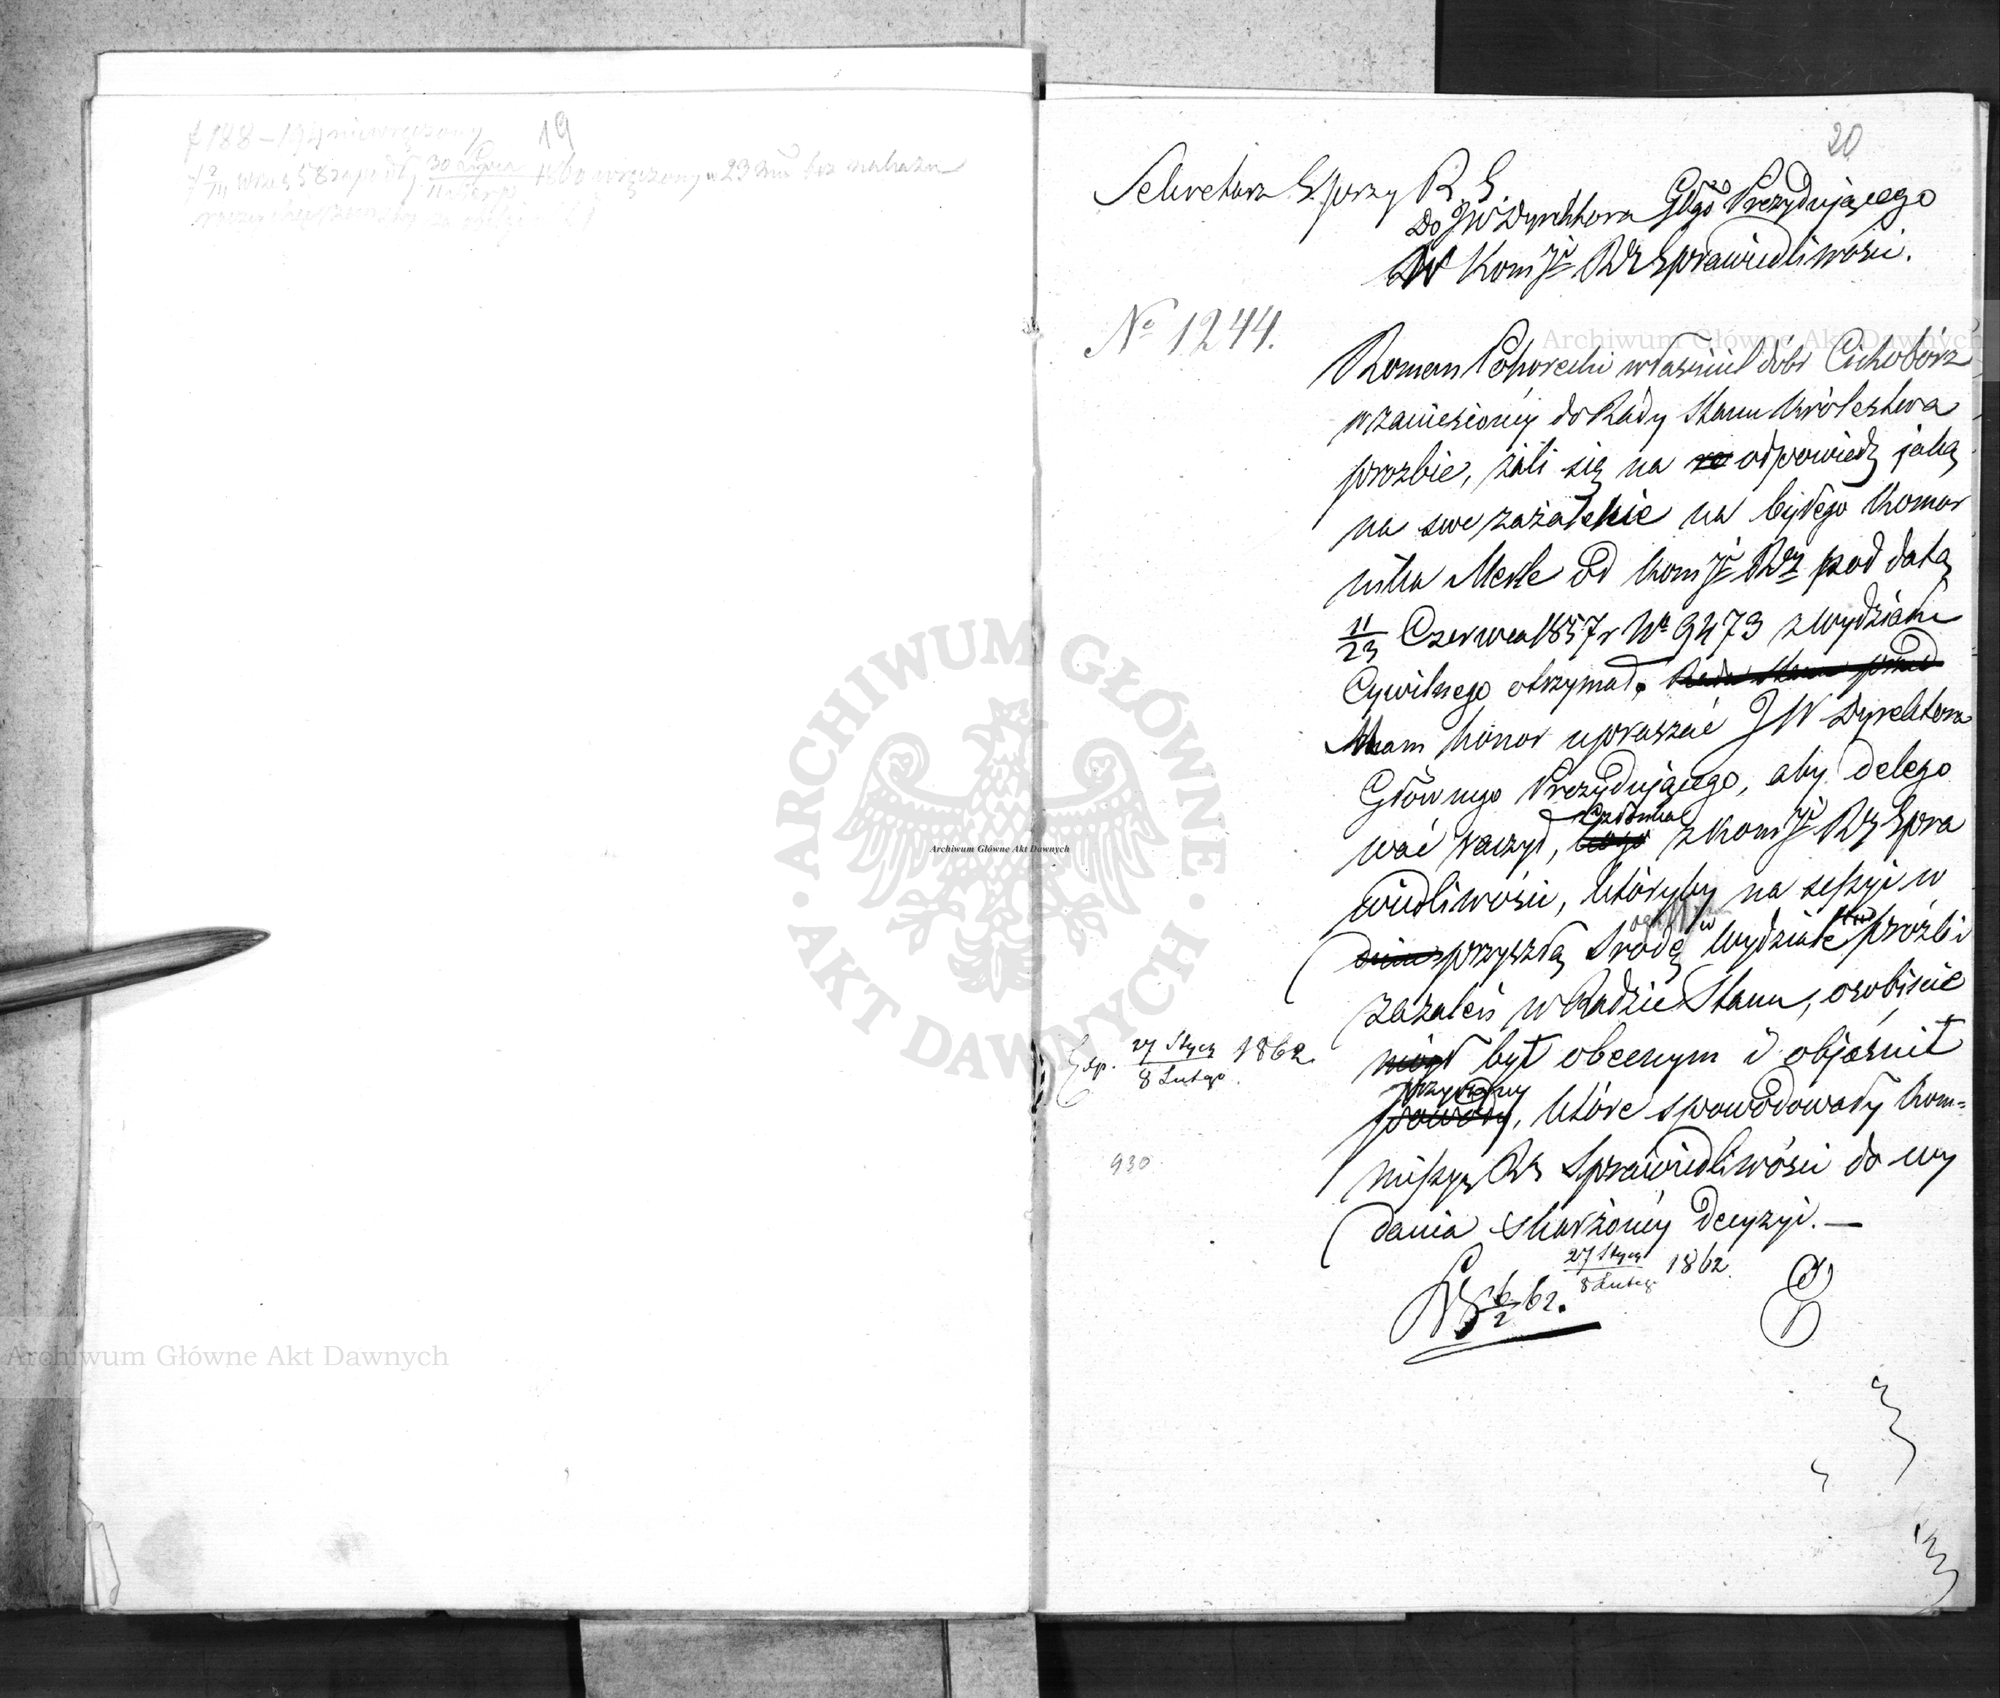 19
f 188 – 194 niewręczony
30 Lipca
11 Sierp 1860 wręczony 23 bez nakazu
20
Sekretarz S. przy R S
Do JW Dyrektora Głgo Prezydującego
W Kom Ji Rz Sprawiedliwości.
No 1244.
Roman Pohorecki właściciel dobr Cichobórz
w zaniesionéy do Rády Stanu Królestwa
prozbie, żáli się na re odpowiedź jaką
na swe zażalenie na byłego Komor
nika Merle od Kom Ji Rzj pod datą
11/23 Czerwca 1857 r No 9473 z Wydziału
Cywilnego otrzymał. Rada Stanu przed
Mam honor upraszać JW Dyrektora
Głównego Prezydującego, aby delego
wać raczył, kogo Członka z Kom Ji Rz Spra
wiedliwości, któryby na sessyi w
przyszłą Srodę w Wydziale próźb i
zażaleń w Radzie Stanu, osobiście
mógł był obecnym i objaśnił
przyczyny
powody, które spowodowały Kom=
missyę Rz Sprawiedliwości do wy
dania skarżonéy decyzyi. —
Exp. 27 Stycz / 8 Lutego 1862.
930
27 Stycz / 8 Luteg 1862
6/2 62.
Archiwum Główne Akt Dawnych
ARCHIWUM GŁÓWNE AKT DAWNYCH
Archiwum Główne Akt Dawnych
Archiwum Główne Akt Dawnych